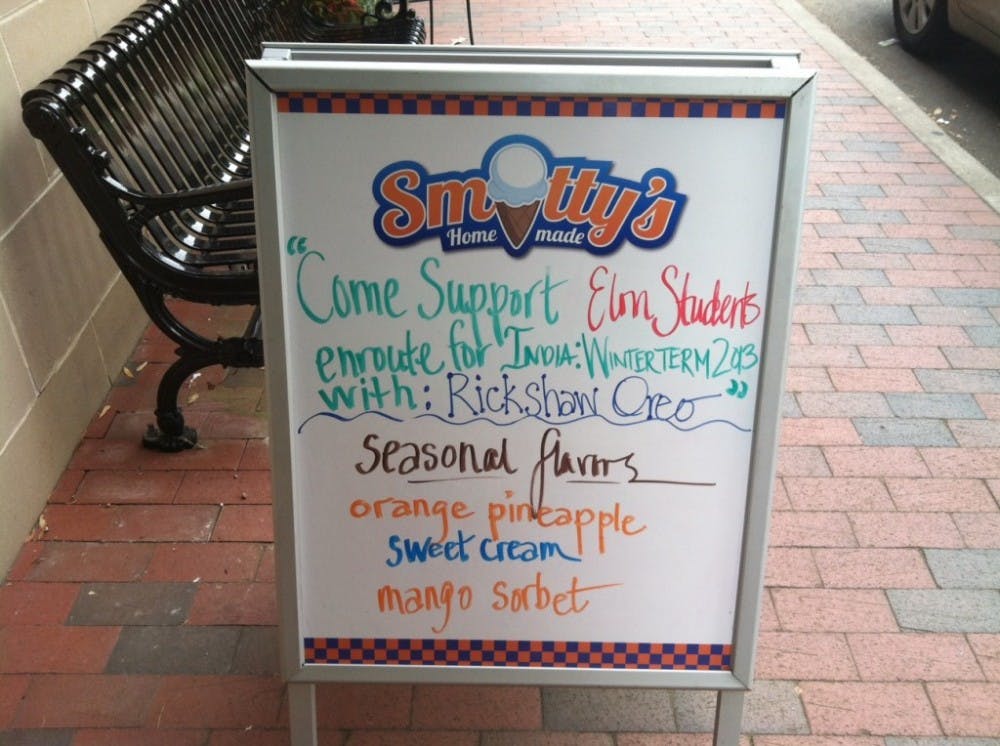 Smotty's
Home made
"Come Support Elon Students
enroute for INDIA: WINTERTERM 2013
with: Rickshaw Oreo"
seasonal flavors
orange pineapple
sweet cream
mango sorbet